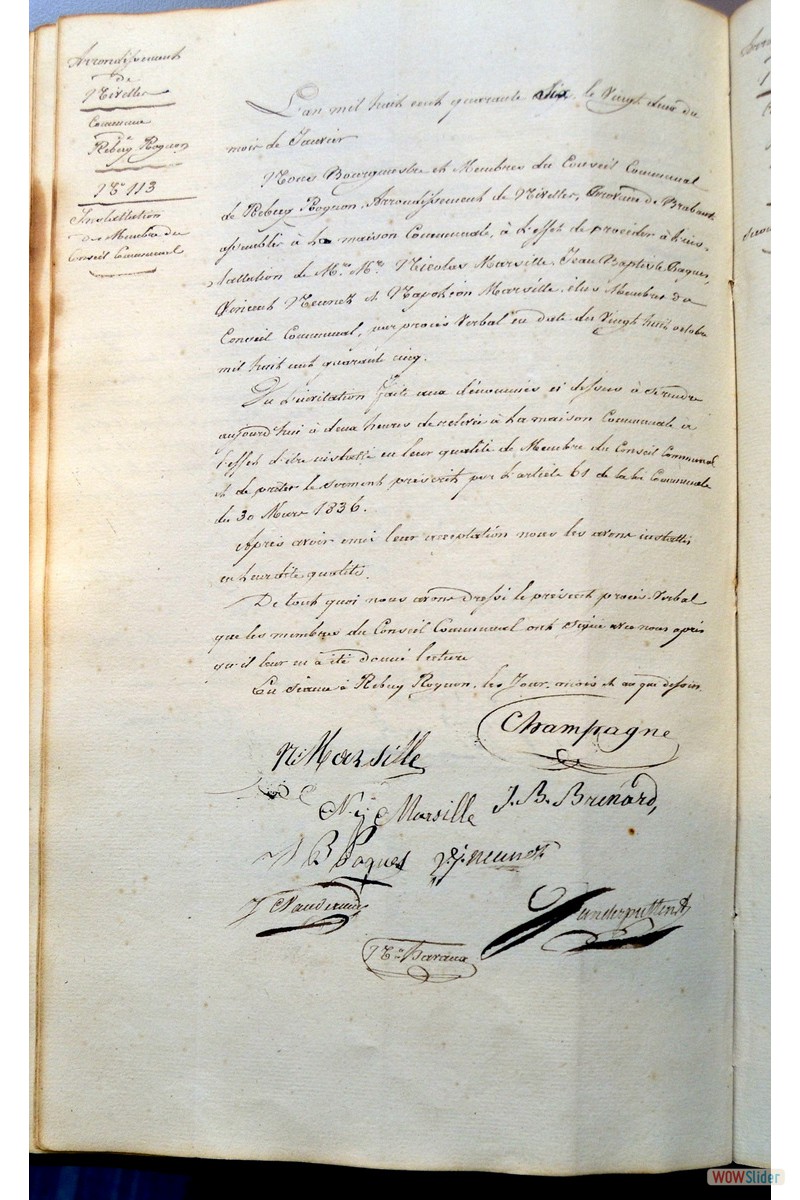 Arrondissement
de
Nivelles
Commune
de
Rebecq Rognon
N° 113
Installation
des Membres du
Conseil Communal
L'an mil huit cent quarante Six, le Vingt deux du
mois de Janvier
Nous Bourgmestre et Membres du Conseil Communal
de Rebecq Rognon, Arrondissement de Nivelles, Province de Brabant,
assemblés à la maison Communale, à l'effet de procéder à l'ins-
tallation de Mrs Mrs Nicolas Marsille, Jean Baptiste Paques,
Vincent Neunez et Napoléon Marsille, élus Membres du
Conseil Communal, par procès Verbal en date du Vingt huit octobre
mil huit cent quarante cinq.
Vu l'invitation faite aux dénommés ci dessus à se rendre
aujourd'hui à deux heures de relevée à la maison Communale à
l'effet d'être installé en leur qualité de Membre du Conseil Communal
et de prêter le serment préscrit par l'article 61 de la loi Communale
du 30 Mars 1836.
Après avoir oui leur acceptation nous les avons installés
en leur dite qualité.
De tout quoi nous avons dressé le présent procès-Verbal
que les membres du Conseil Communal ont signé avec nous après
qu'il leur en a été donné lecture
En séance à Rebecq Rognon, les Jour, mois et an que dessus.
Champagne
N: Marsille
N. Marsille
J. B. Brenard,
J B Paques
Vanderputten